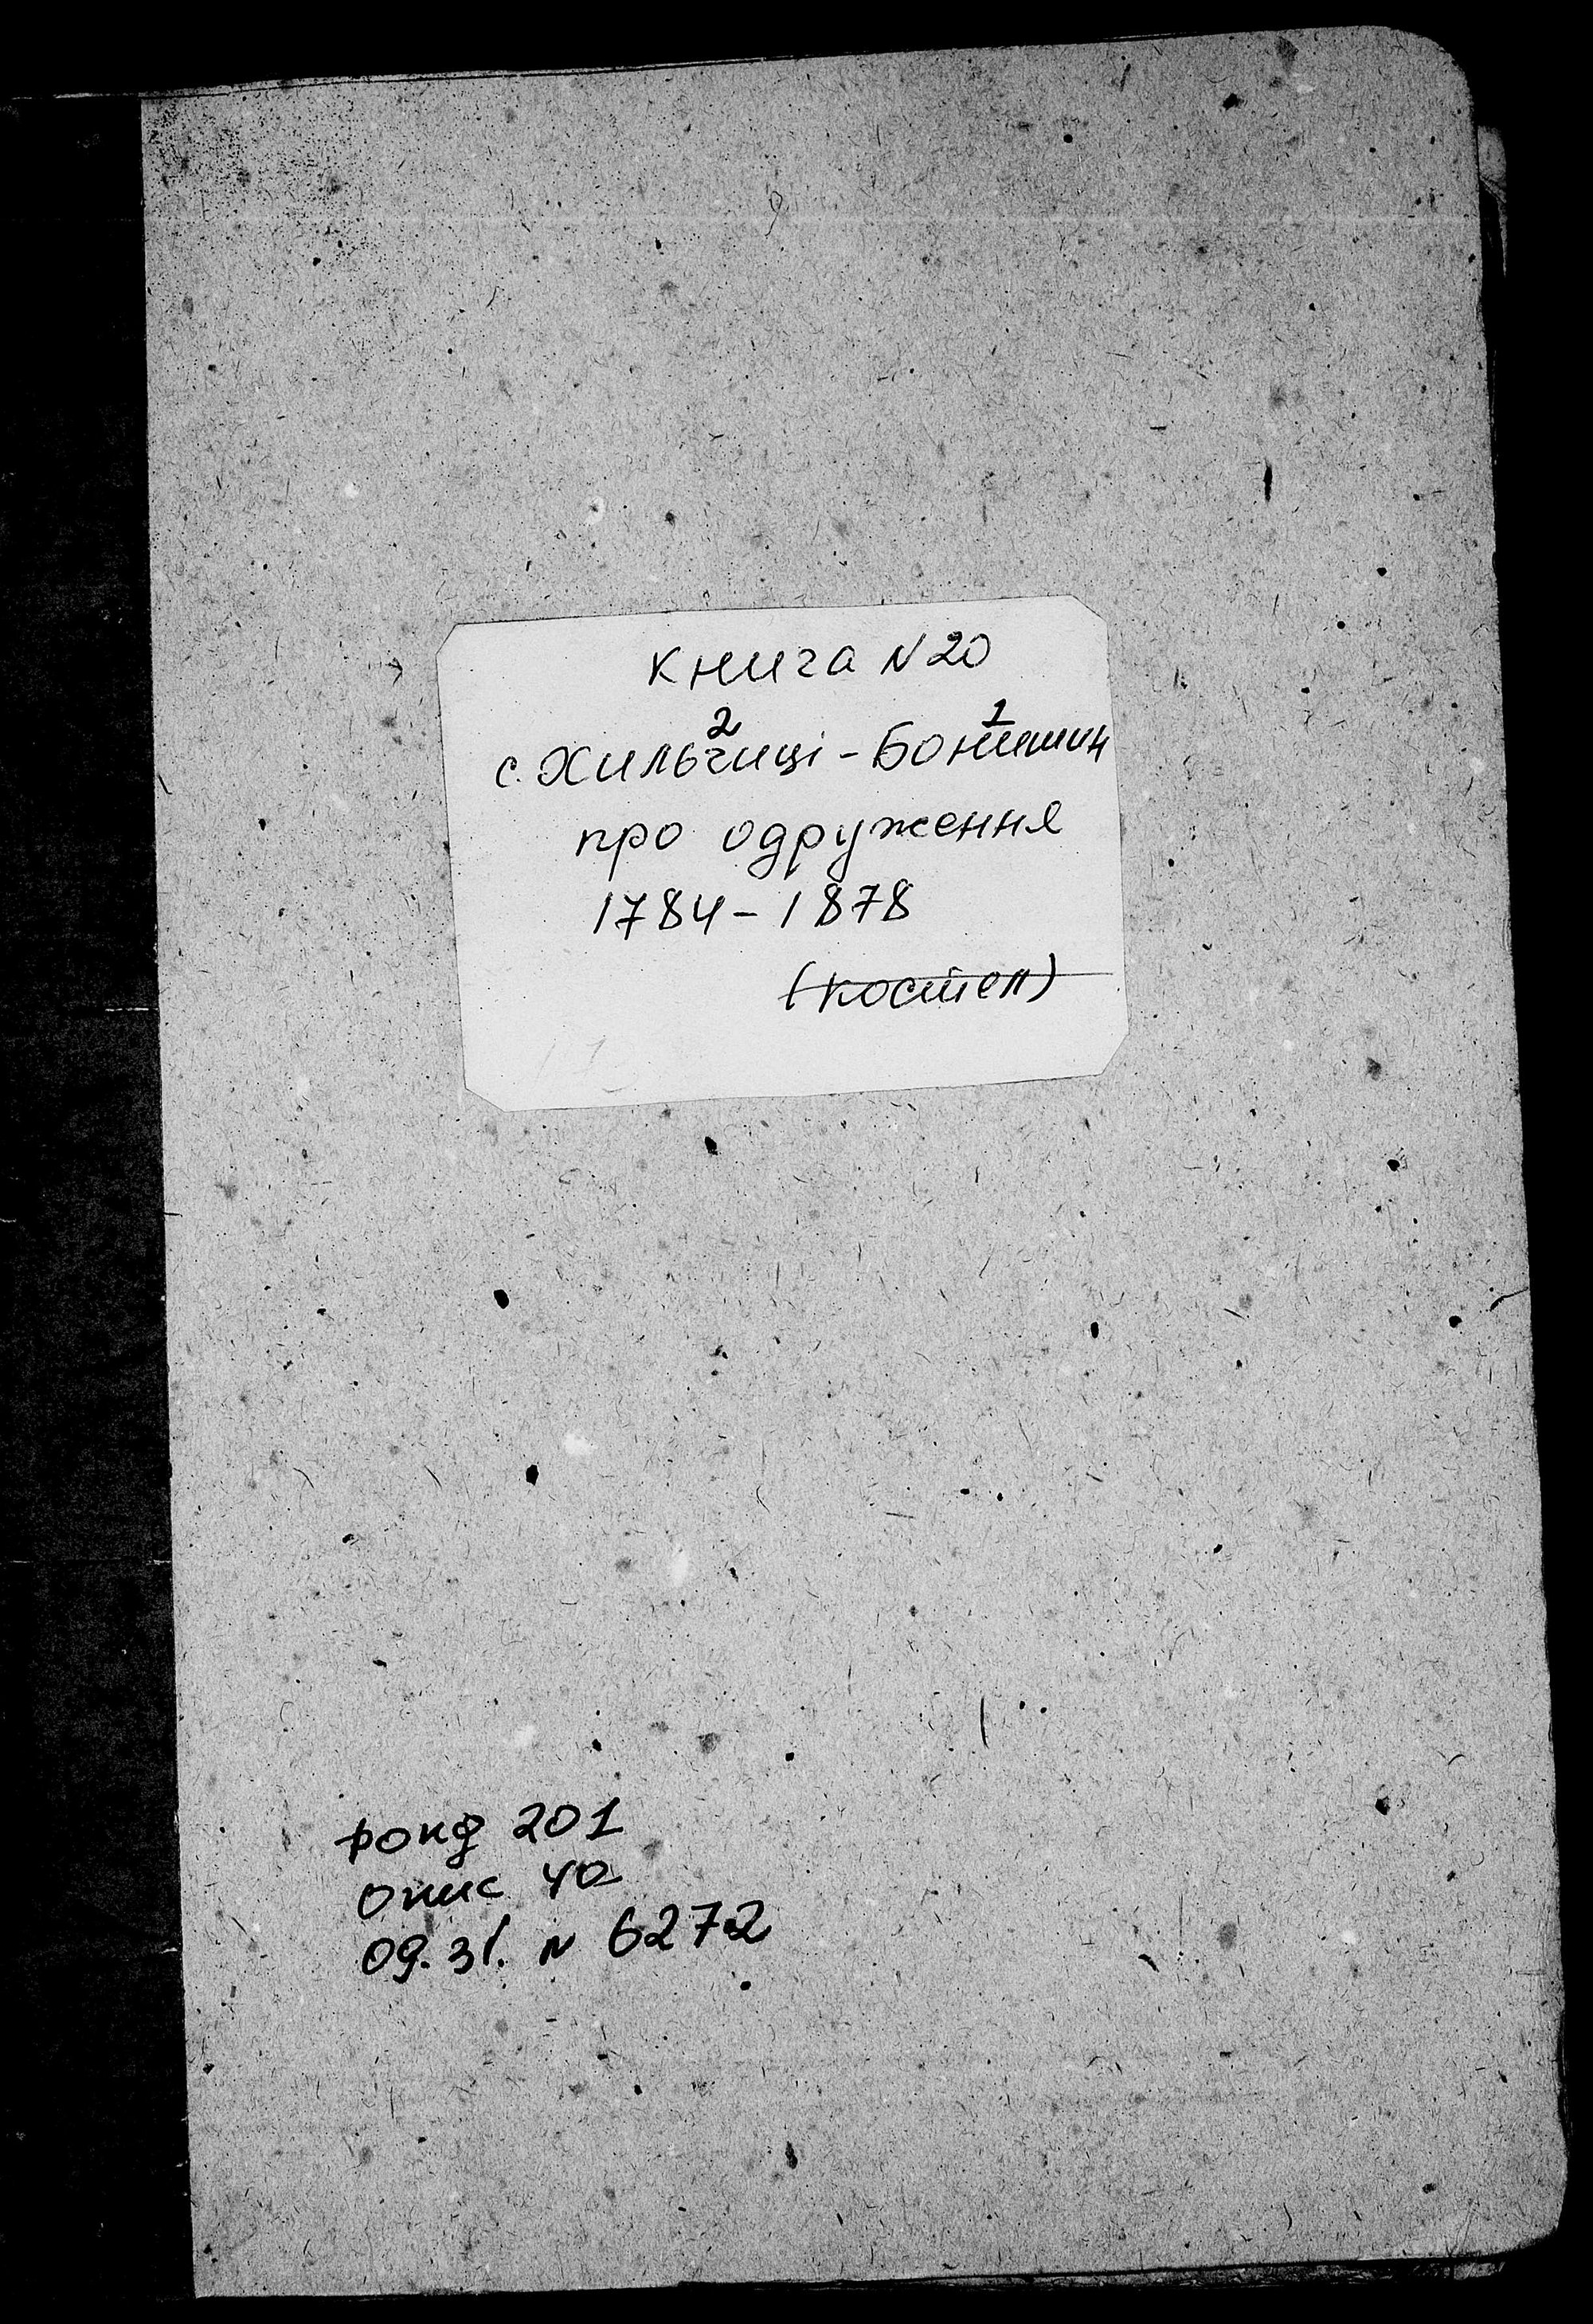 Книга N 20
2 1
с. Хильчиці - Бонишин
про одруження
1784 - 1878
(костел)
фонд 201
опис 4а
од. зб. N 6272